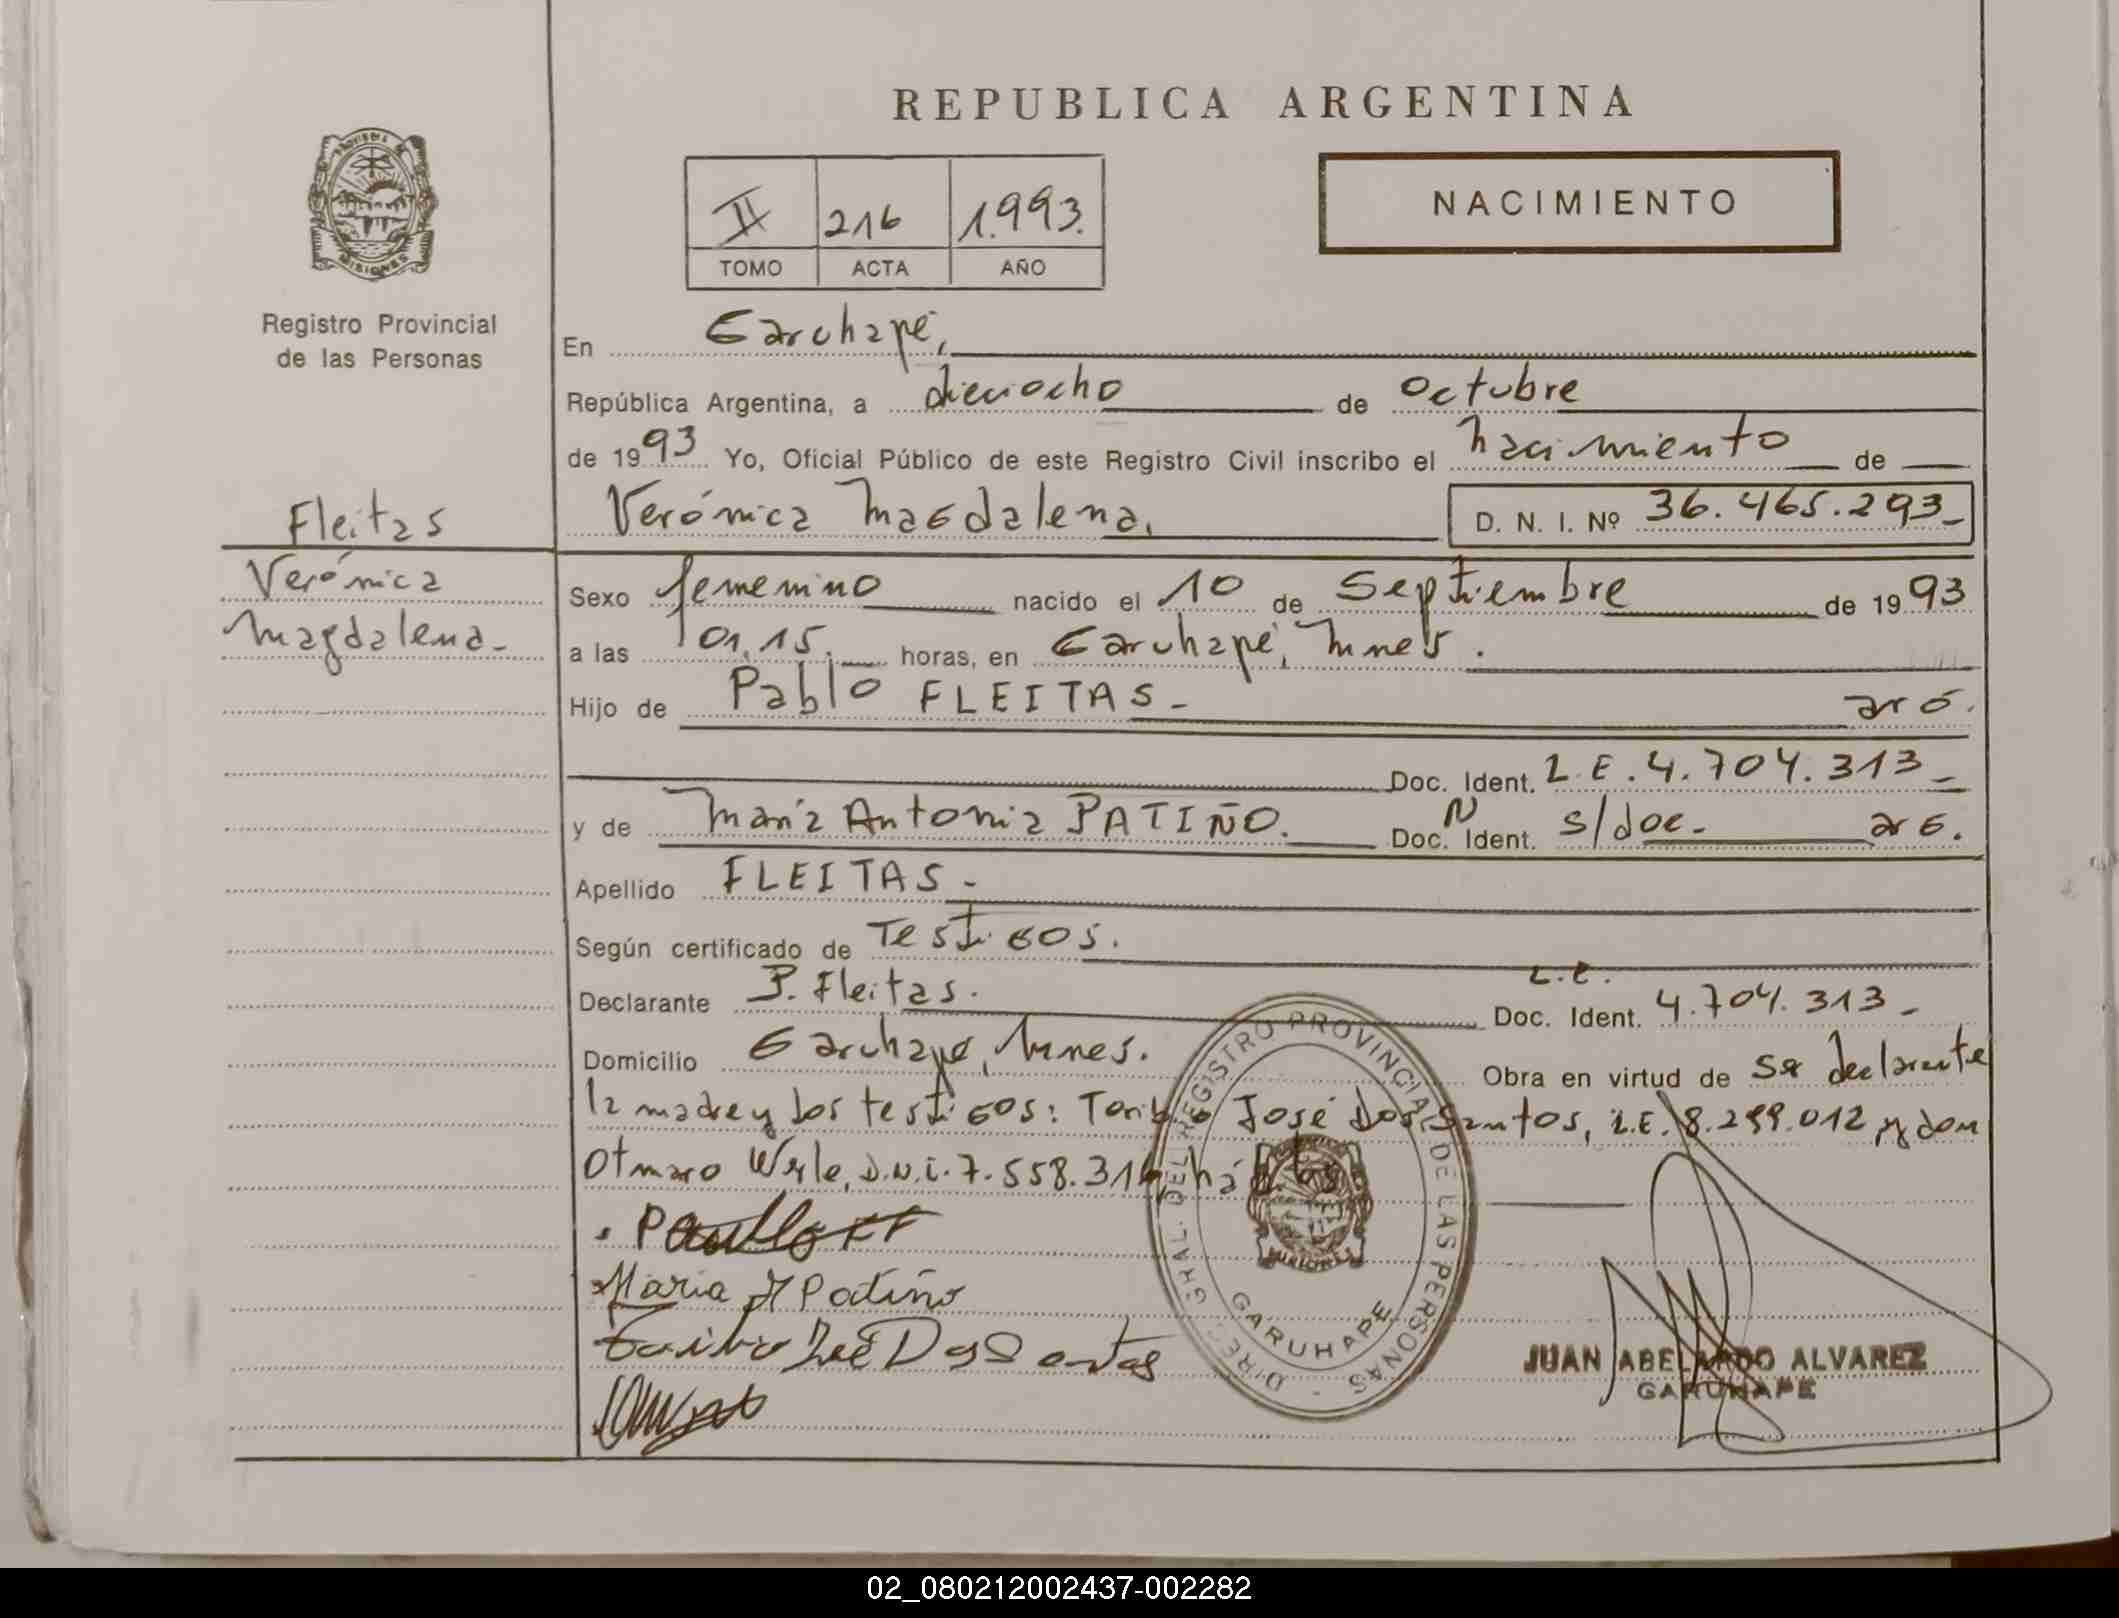 REPUBLICA ARGENTINA
PROVINCIA DE
MISIONES
Registro Provincial
de las Personas
II 216 1.993.
TOMO ACTA AÑO
NACIMIENTO
En Garuhapé,
República Argentina, a dieciocho de octubre
de 1993 Yo, Oficial Público de este Registro Civil inscribo el nacimiento de
Verónica Magdalena, D. N. I. Nº 36.465.293_
Fleitas
Verónica
Magdalena-
Sexo femenino nacido el 10 de Septiembre de 1993
a las 01.15. horas, en Garuhapé, Mnes.
Hijo de Pablo FLEITAS- arg.
Doc. Ident. L.E. 4.704.313_
y de María Antonia PATIÑO. Doc. N Ident. s/doc. arg.
Apellido FLEITAS-
Según certificado de Testigos.
Declarante P. Fleitas. L.E. Doc. Ident. 4.704.313-
Domicilio Garuhapé, Mnes. Obra en virtud de ser declarante
la madre y los testigos: Toribio José Dos Santos, L.E. 8.299.012 y don
Otmaro Werle, D.N.I. 7.558.314,
Maria A Patiño
Toribio José Dos Santos
DIREC. GRAL. DEL REGISTRO PROVINCIAL DE LAS PERSONAS -
MISIONES
GARUHAPE
JUAN ABELARDO ALVAREZ
GARUHAPE
02_080212002437-002282